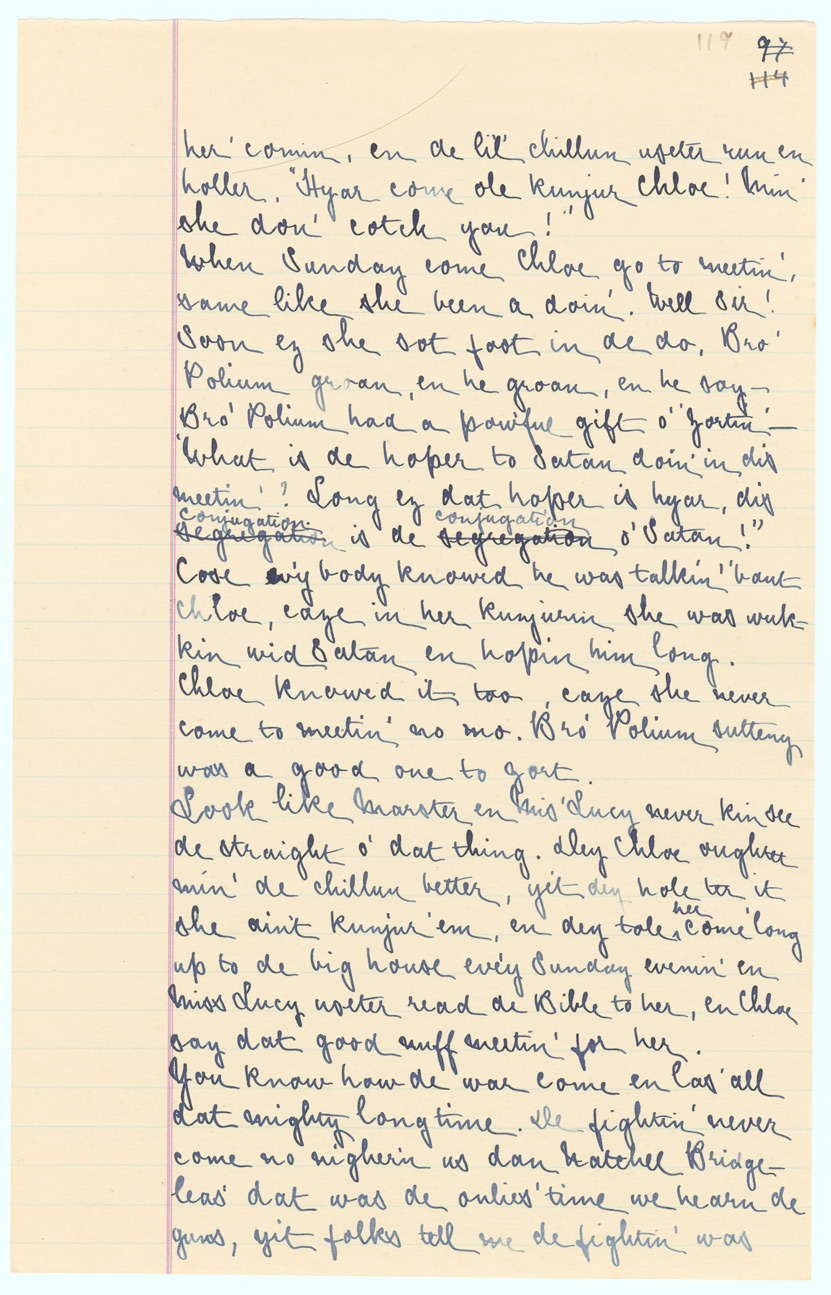 119 97
114
her' comin, en de lil' chillun useter run en
holler, "Hyar come ole Kunjur Chloe! Min'
she don' cotch you!"
When Sunday come Chloe go to meetin',
same like she been a doin'. Well Sir!
Soon ez she sot foot in de do, Bro'
Polium groan, en he groan, en he say—
Bro' Polium had a pow'ful gift o' 'zortin'—
'What is de hoper to Satan doin' in dis
meetin'? Long ez dat hoper is hyar, dis
conjugation. conjugation
segregation is de segregation o' Satan!"
Cose ev'y body knowed he was talkin' 'bout
Chloe, caze in her Kunjurin she was wuk-
kin wid Satan en hopin him long.
Chloe knowed it too, caze she never
come to meetin' no mo. Bro' Polium sutteny
was a good one to zort.
Look like Marster en Mis' Lucy never kin see
de straight o' dat thing. Dey Chloe oughter
min' de chillun better, yit dey hole ter it
she ain't Kunjur 'em, en dey tole her come 'long
up to de big house ev'y Sunday evenin' en
Miss Lucy useter read de Bible to her, en Chloe
say dat good nuff meetin' for her.
You know how de war come en las' all
dat mighty long time. De fightin' never
come no nigher'n us dan Hatchell Bridge—
leas' dat was de onlies' time we hearn de
guns, yit folks tell me de fightin' was